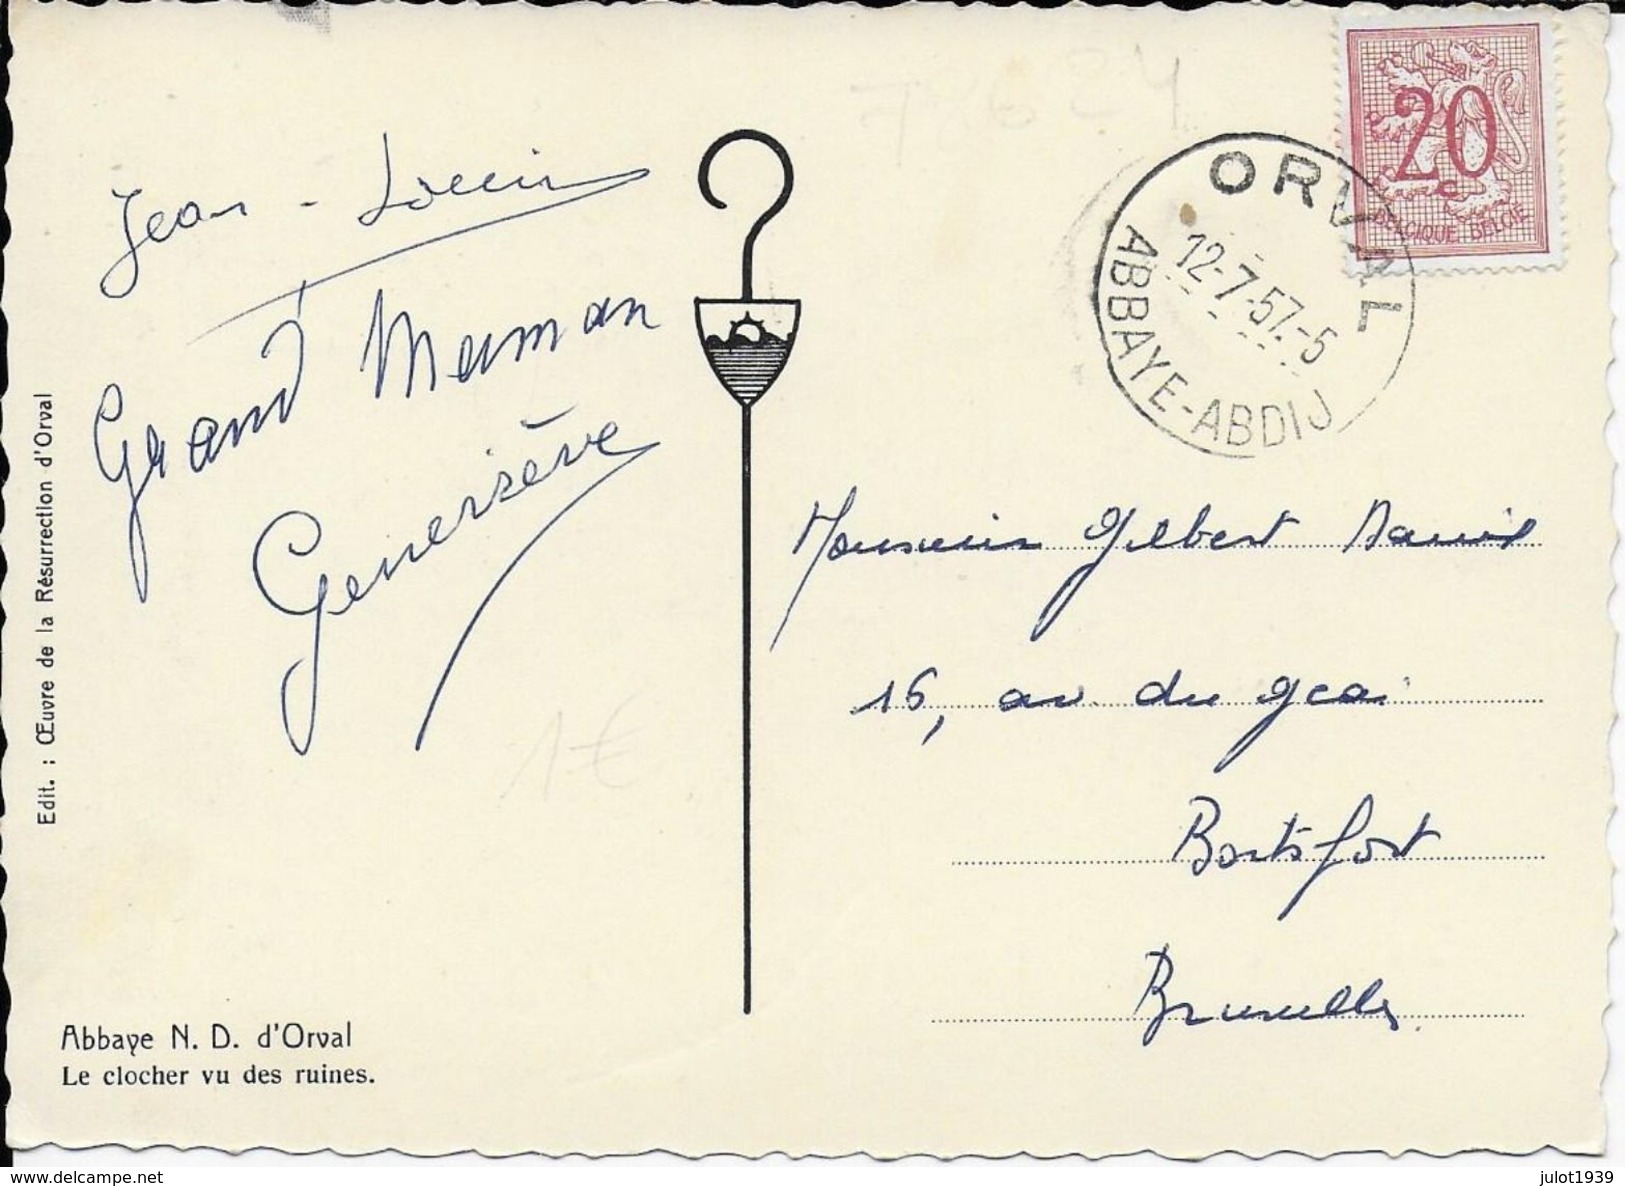 20
BELGIQUE BELGIE
ORVAL
12-7-57.-5
ABBAYE-ABDIJ
Jean-Louis
Grand Maman
Geneviève
1€
Monsieur Gilbert
16, av. du geai
Boitsfort
Bruxelles
Edit. : Œuvre de la Résurrection d'Orval
Abbaye N. D. d'Orval
Le clocher vu des ruines.
delcampe.net
julot1939